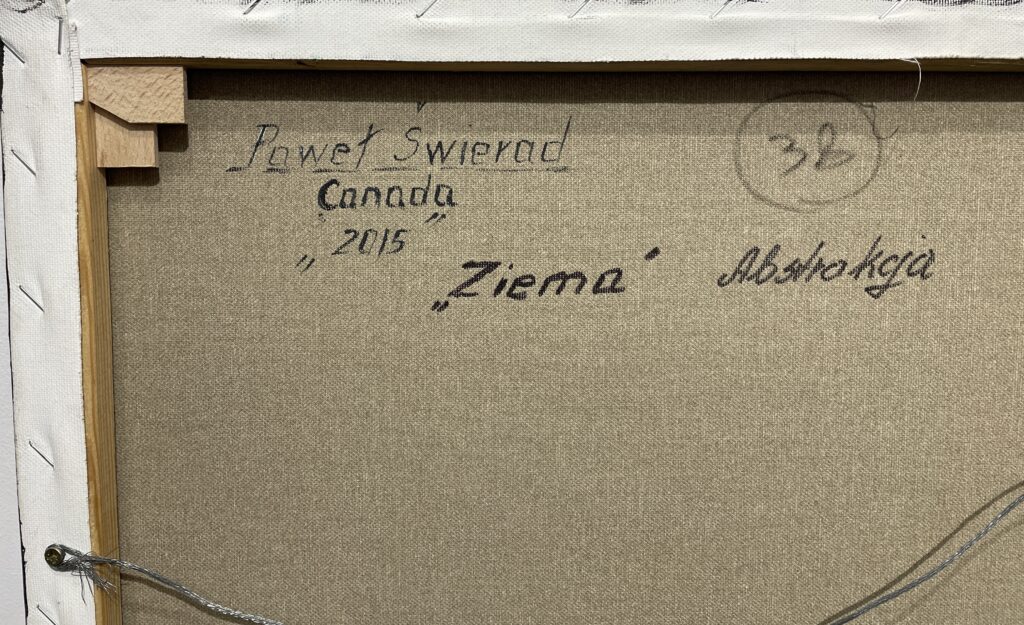 Paweł Swierad
38
Canada
„2015"
„Ziema" Abstrakcja